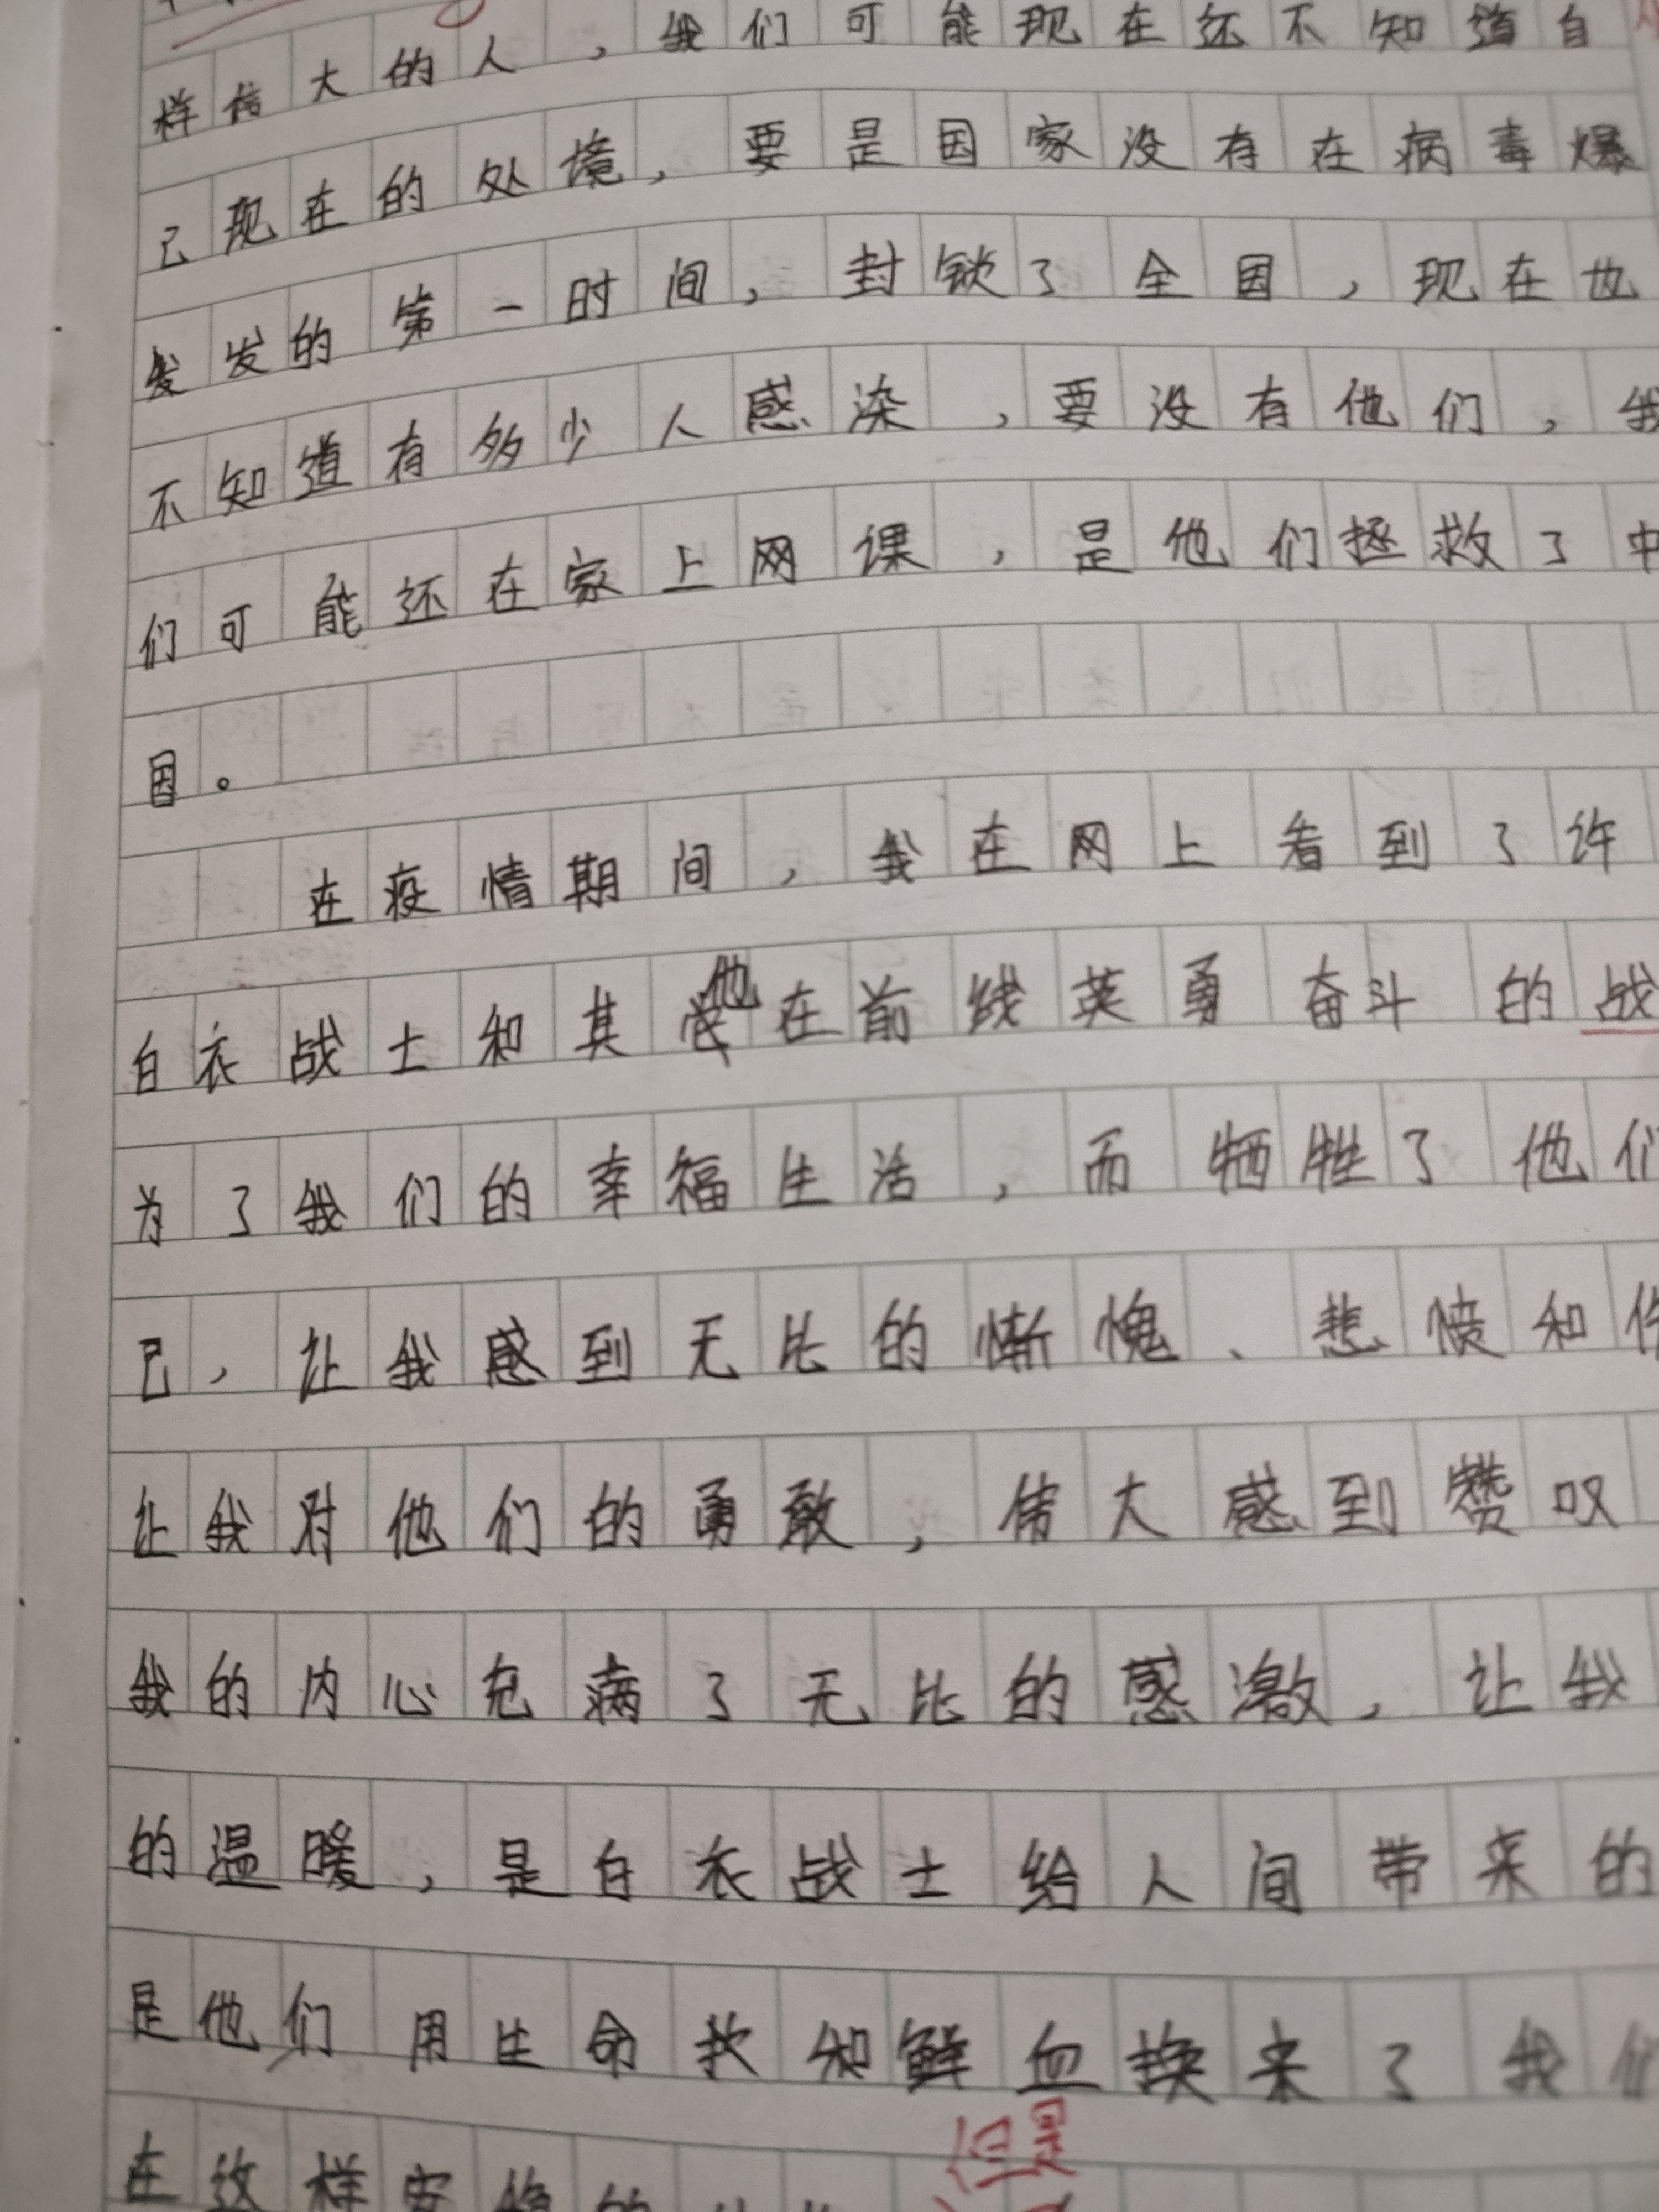 样伟大的人，我们可能现在还不知道自
己现在的处境，要是国家没有在病毒爆
发的第一时间，封锁了全国，现在也
不知道有多少人感染，要没有他们，我
们可能还在家上网课，是他们拯救了中
国。
在疫情期间，我在网上看到了许
白衣战士和其他在前线英勇奋斗的战
为了我们的幸福生活，而牺牲了他们
己，让我感到无比的惭愧、悲愤和
让我对他们的勇敢，伟大感到赞叹
我的内心充病了无比的感激，让我
的温暖，是白衣战士给人间带来的
是他们用生命和鲜血换来了我们
但是
在这样安稳的